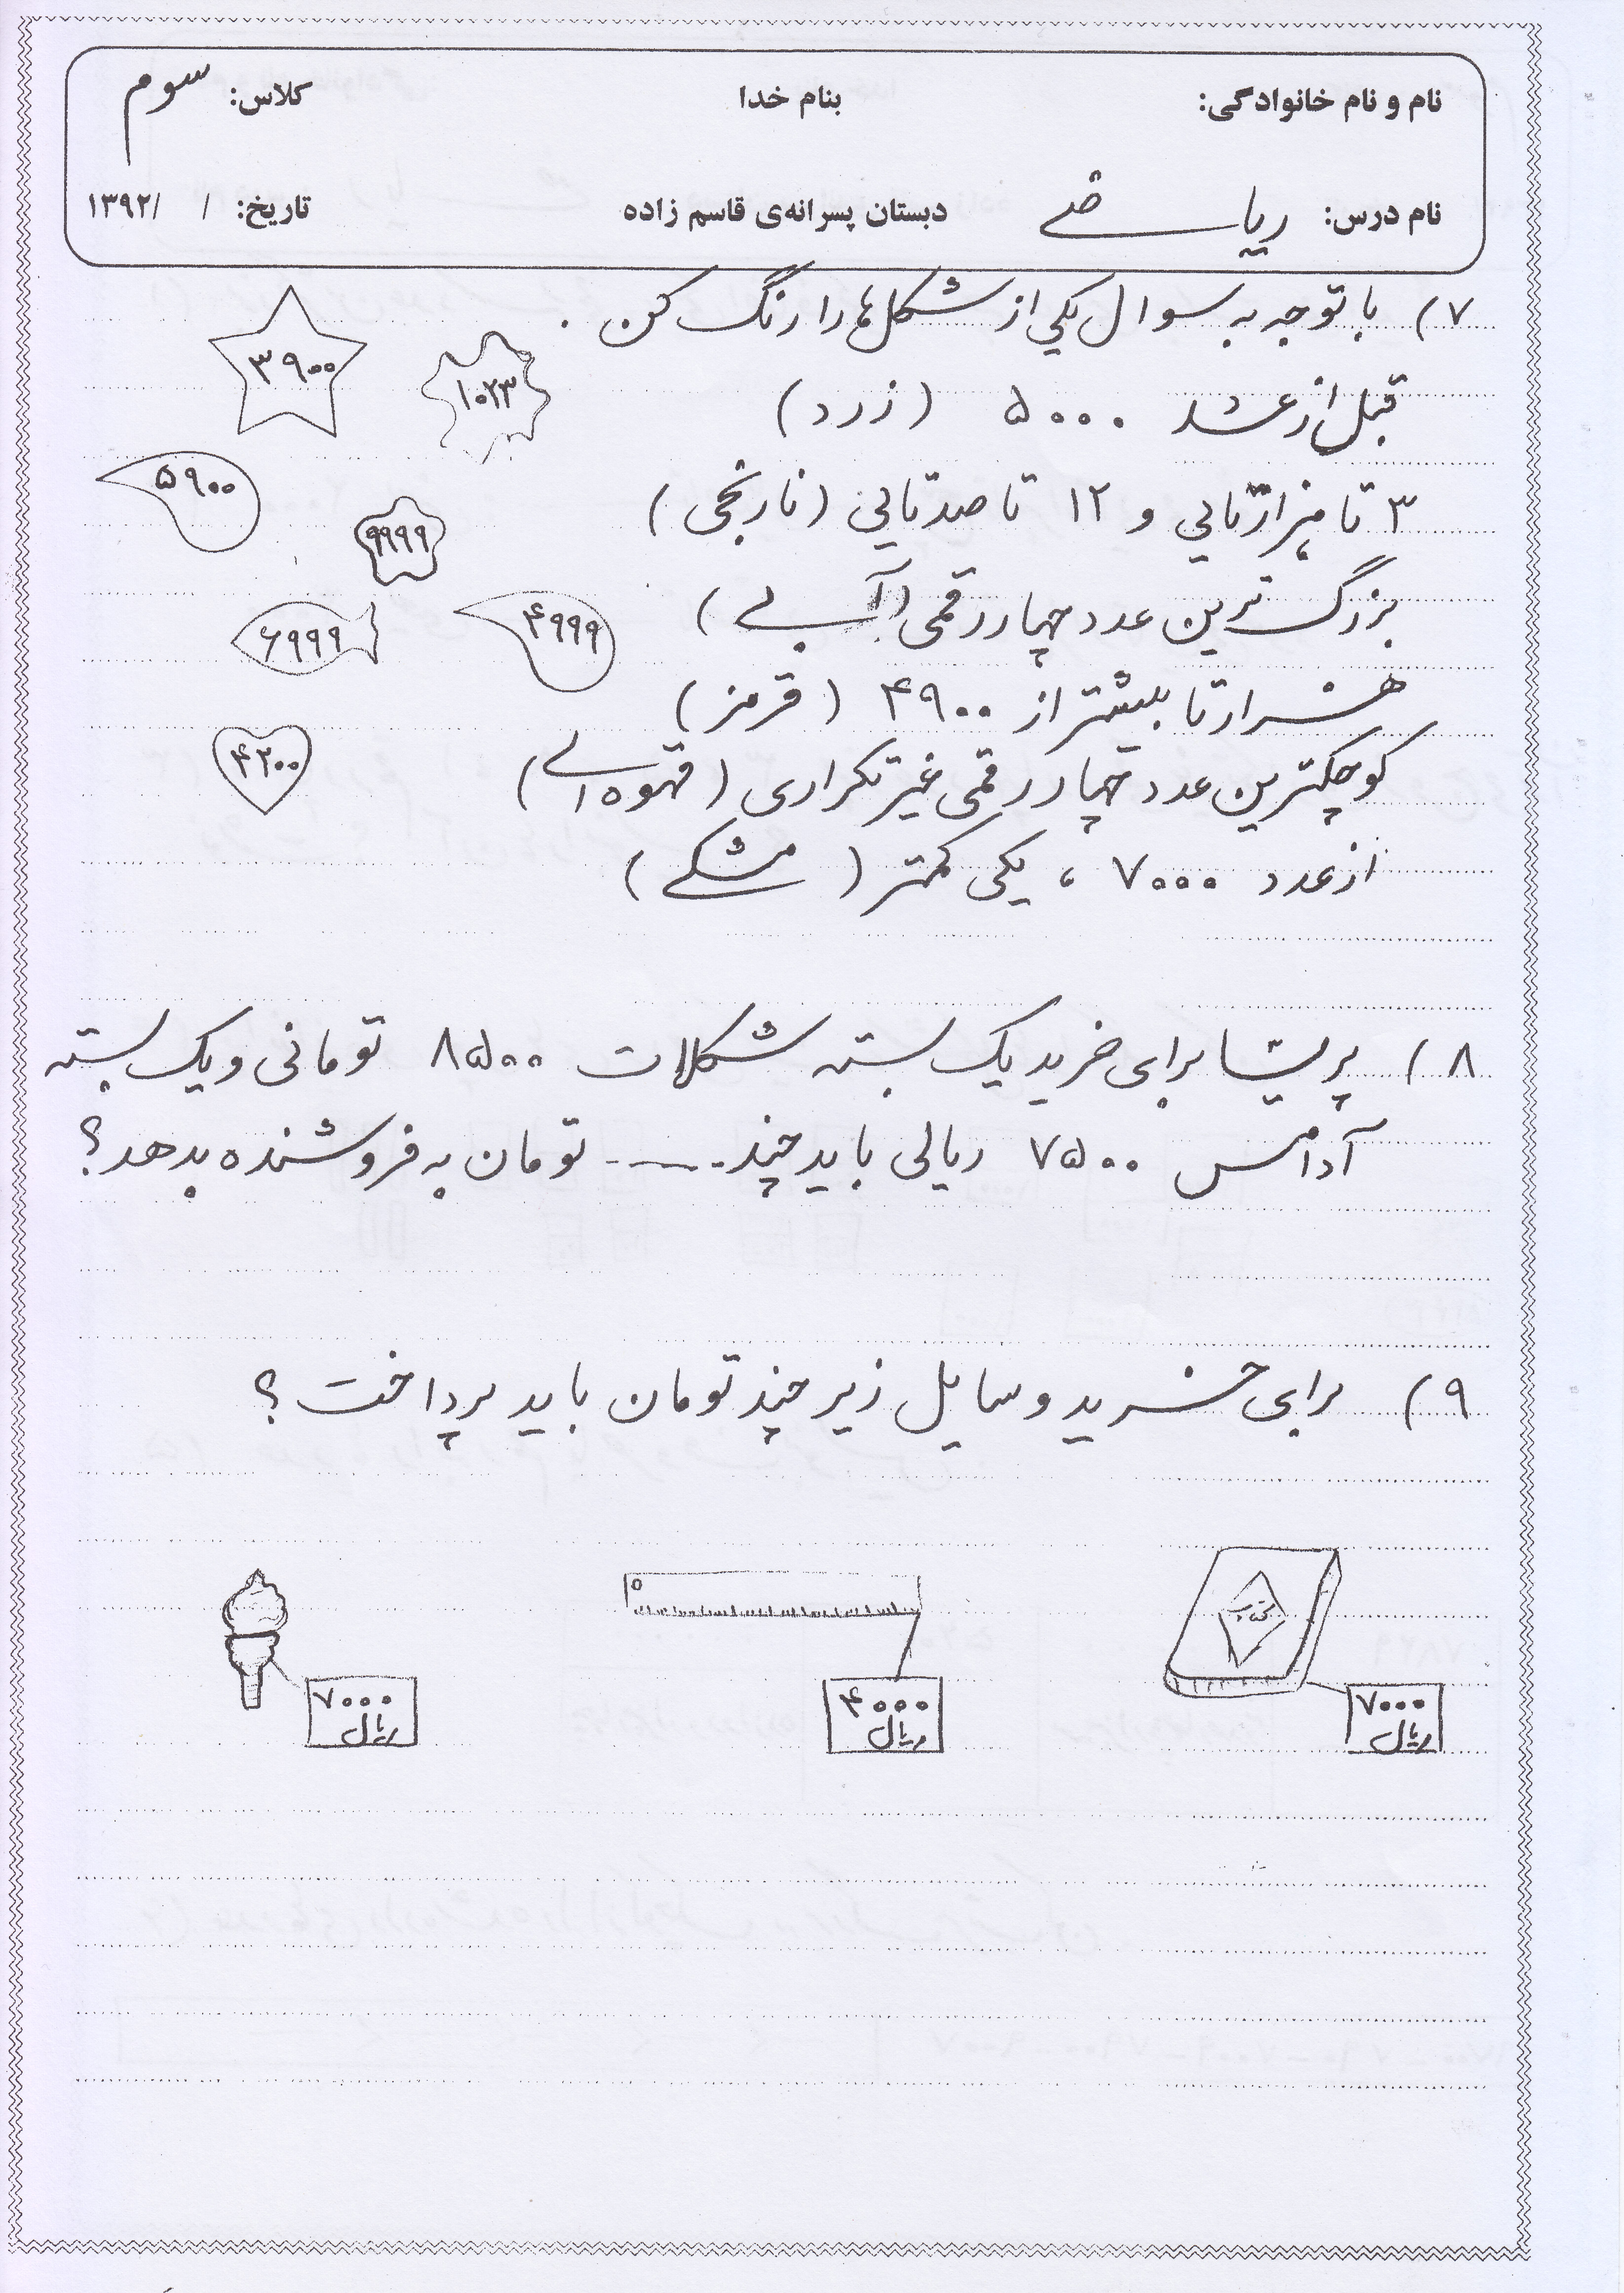 نام و نام خانوادگی: بنام خدا کلاس: سوم
نام درس: ریاضی دبستان پسرانه‌ی قاسم زاده تاریخ: / /۱۳۹۲
۷) با توجه به سوال یکی از شکل‌ها را رنگ کن .
۳۹۰۰
۱۰۲۳
قبل از عدد ۵۰۰۰ (زرد)
۵۹۰۰
۳ تا هزارتایی و ۱۲ تا صدتایی (نارنجی)
۹۹۹۹
بزرگ‌ترین عدد چهار رقمی (آبی)
۴۹۹۹
۶۹۹۹
هزار تا بیشتر از ۴۹۰۰ (قرمز)
کوچکترین عدد چهار رقمی غیر تکراری (قهوه‌ای)
۴۲۰۰
از عدد ۷۰۰۰ ، یکی کمتر (مشکی)
۸) پریشا برای خرید یک بسته شکلات ۸۵۰۰ تومانی و یک بسته
آدامس ۷۵۰۰ ریالی باید چند ..... تومان به فروشنده بدهد؟
۹) برای خرید وسایل زیر چند تومان باید پرداخت؟
۷۰۰۰
ریال
۴۰۰۰
ریال
۷۰۰۰
ریال